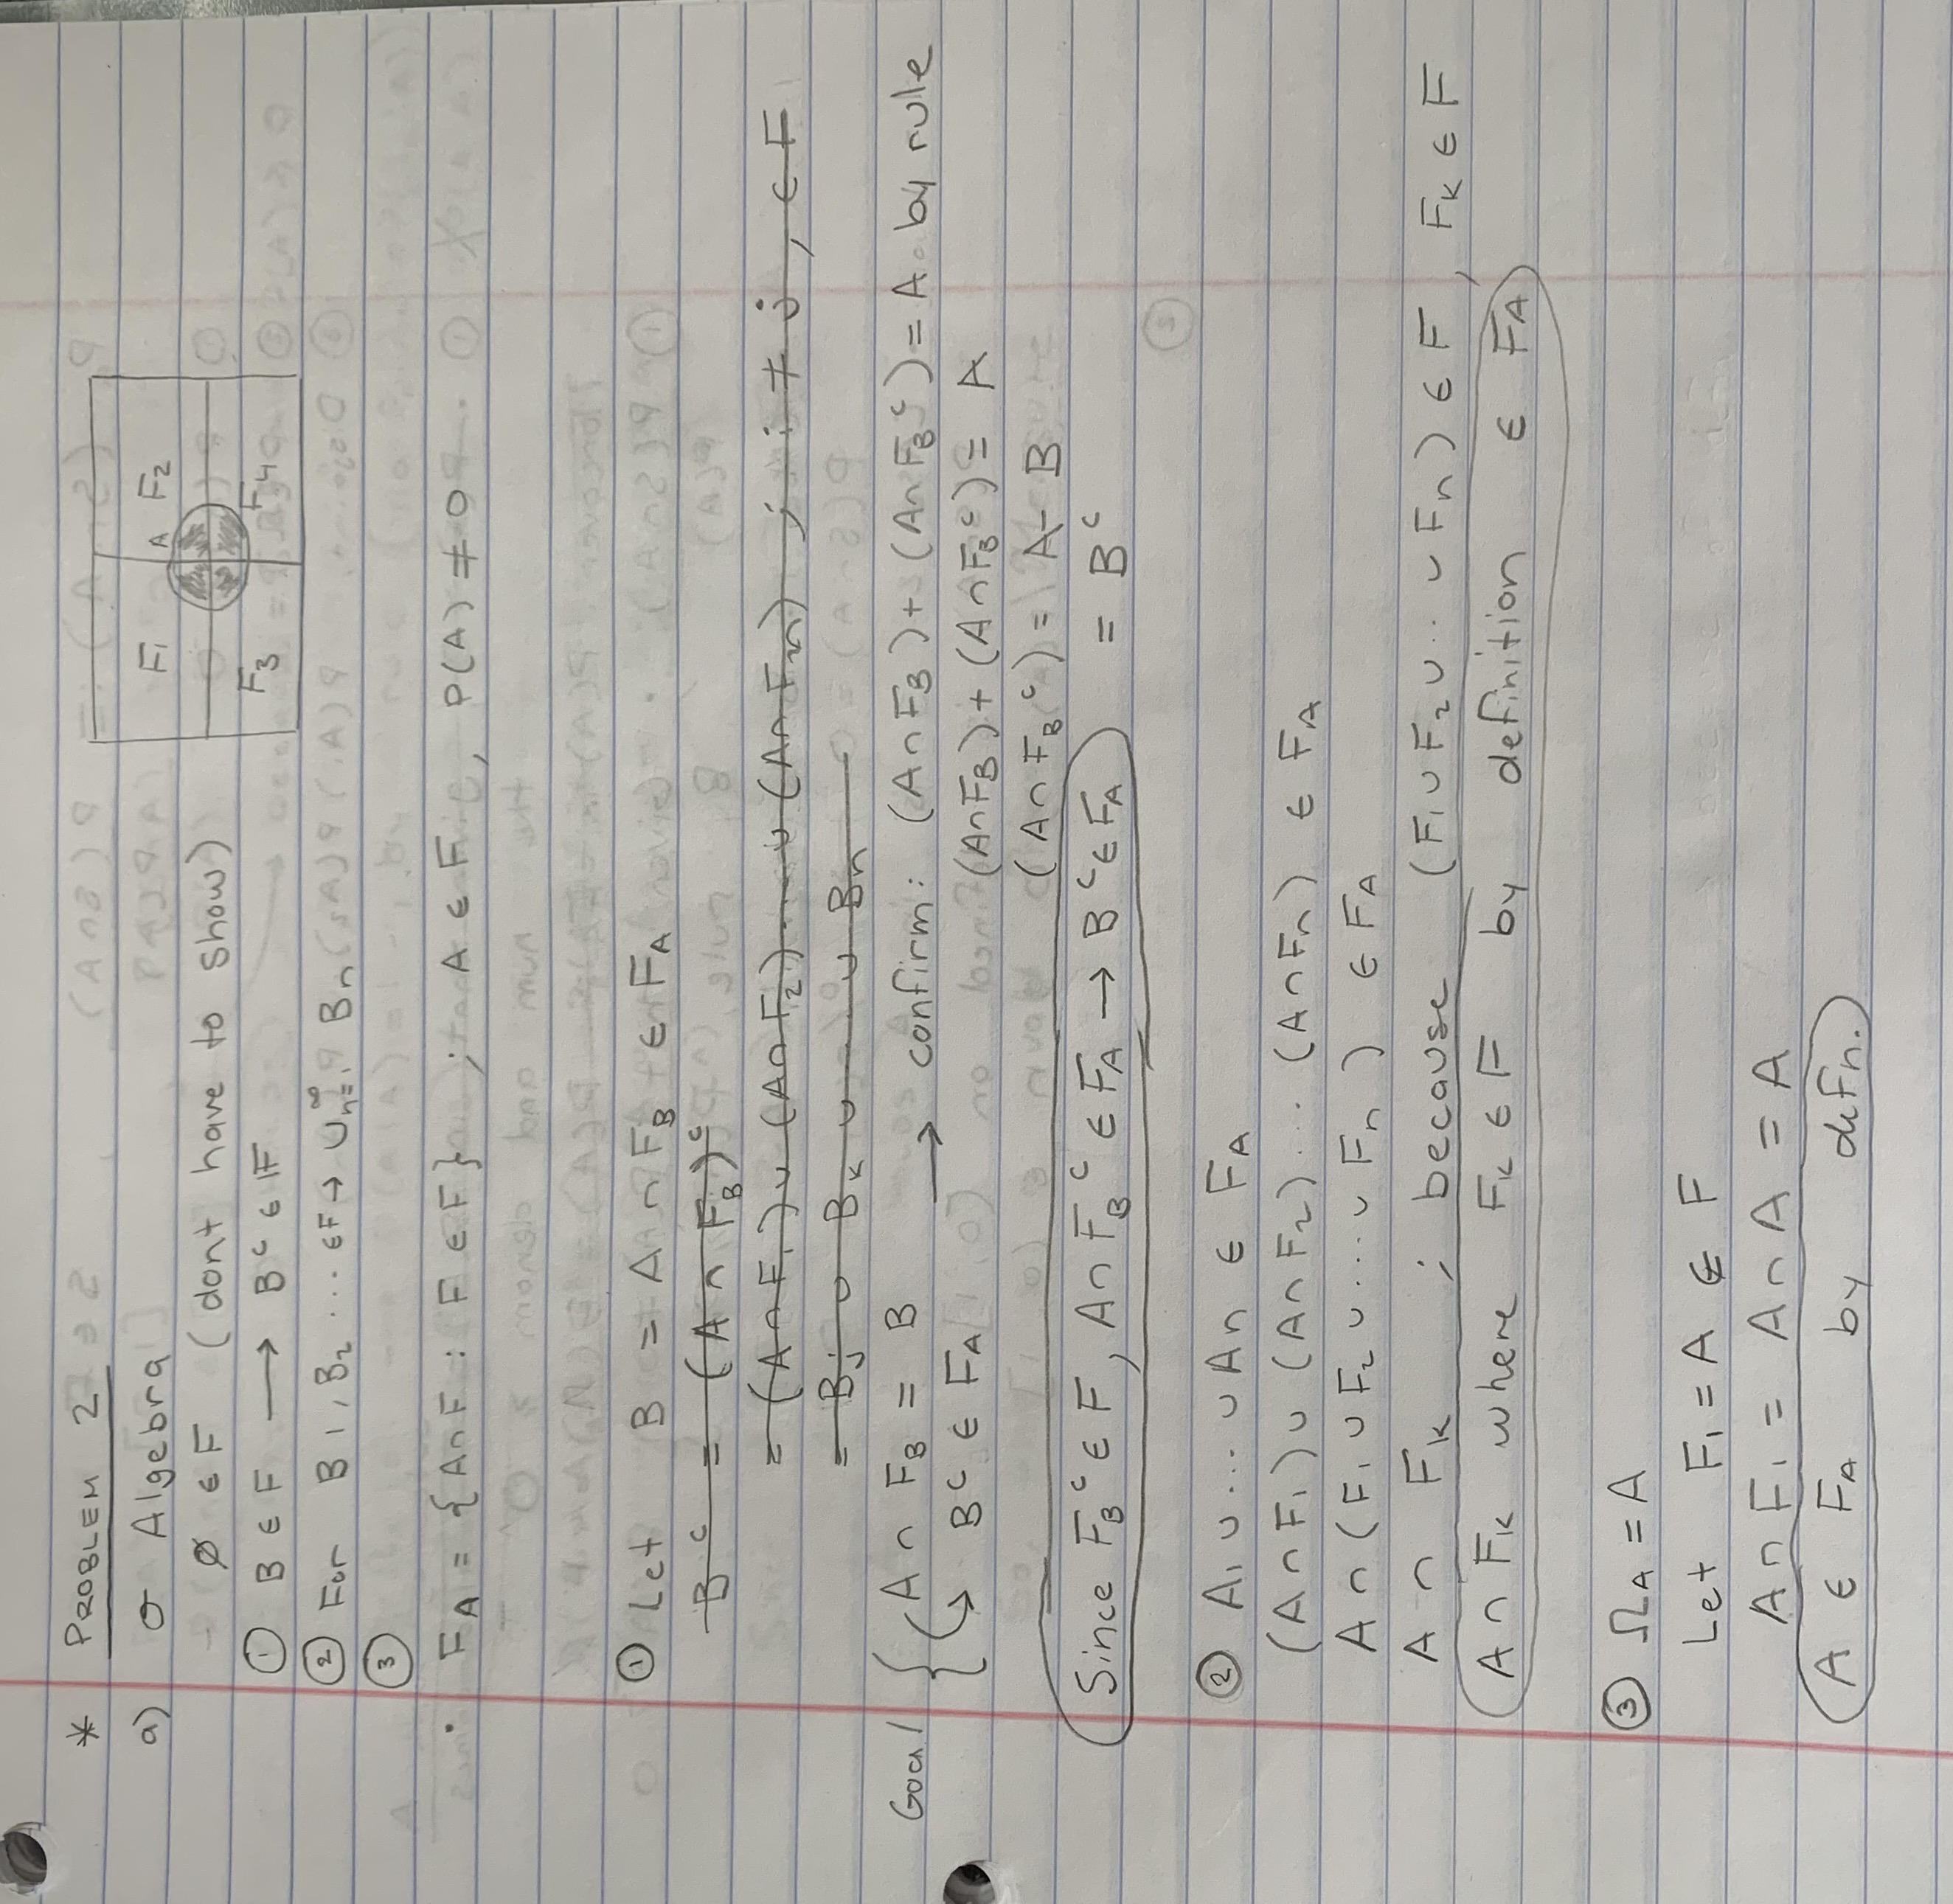 * PROBLEM 2
a) σ Algebra
F1 A F2
F3 F4
∅ ∈ F (dont have to show)
① B ∈ F → Bᶜ ∈ F
② For B1, B2 ... ∈F → ∪ₙ₌₁^∞ Bn
③
· F_A = {A∩F : F ∈ F} ; A ∈ F, P(A) ≠ 0
① Let B = A ∩ F_B ∈ F_A
Bᶜ = (A ∩ F_B)ᶜ
= (A∩F1) ∪ (A∩F2) .... ∪ (A∩Fn) ; i ≠ j, ∈ F
= Bj ∪ Bk ∪ ... ∪ Bn
Goal { A ∩ F_B = B → confirm: (A∩F_B) + (A∩F_Bᶜ) = A by rule
↳ Bᶜ ∈ F_A (A∩F_B) + (A∩F_Bᶜ) = A
(A∩F_Bᶜ) = A - B
Since F_Bᶜ ∈ F, A∩F_Bᶜ ∈ F_A → Bᶜ ∈ F_A = Bᶜ
② A1 ∪ ... ∪ An ∈ F_A
(A∩F1) ∪ (A∩F2) ... (A∩Fn) ∈ F_A
A ∩ (F1 ∪ F2 ∪ ... ∪ Fn) ∈ F_A
A ∩ Fk ; because (F1 ∪ F2 ∪ .. ∪ Fn) ∈ F, Fk ∈ F
A ∩ Fk where Fk ∈ F by definition ∈ F_A
③ Ω_A = A
Let F1 = A ∈ F
A ∩ F1 = A ∩ A = A
A ∈ F_A by defn.